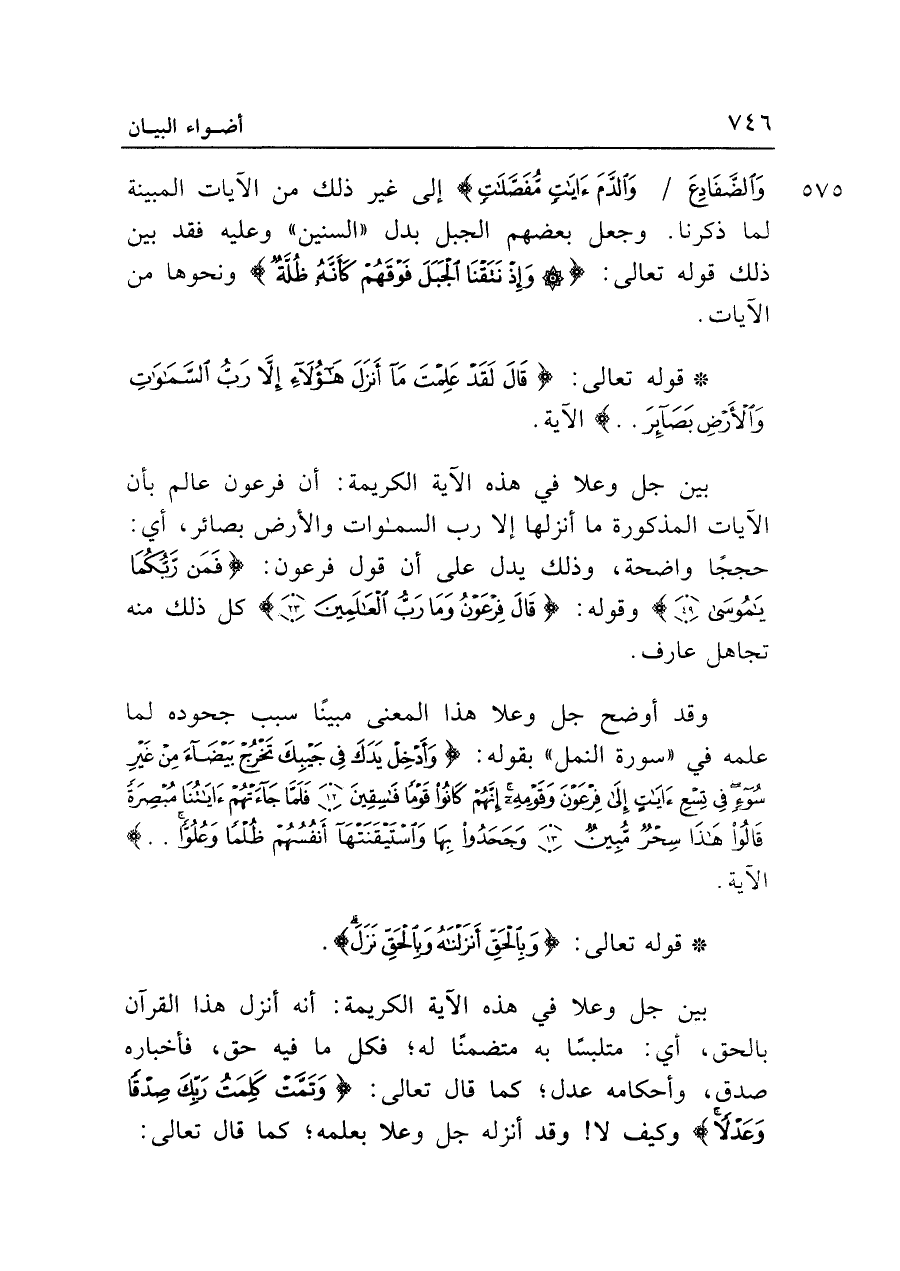 ٧٤٦ أضواء البيان
٥٧٥ وَٱلضَّفَادِعَ / وَٱلدَّمَ ءَايَٰتٖ مُّفَصَّلَٰتٖ ﴾ إلى غير ذلك من الآيات المبينة
لما ذكرنا. وجعل بعضهم الجبل بدل «السنين» وعليه فقد بين
ذلك قوله تعالى: ﴿ ۞ وَإِذۡ نَتَقۡنَا ٱلۡجَبَلَ فَوۡقَهُمۡ كَأَنَّهُۥ ظُلَّةٞ ﴾ ونحوها من
الآيات.
* قوله تعالى: ﴿ قَالَ لَقَدۡ عَلِمۡتَ مَآ أَنزَلَ هَٰٓؤُلَآءِ إِلَّا رَبُّ ٱلسَّمَٰوَٰتِ
وَٱلۡأَرۡضِ بَصَآئِرَ . . ﴾ الآية.
بين جل وعلا في هذه الآية الكريمة: أن فرعون عالم بأن
الآيات المذكورة ما أنزلها إلا رب السمٰوات والأرض بصائر، أي:
حججًا واضحة، وذلك يدل على أن قول فرعون: ﴿ فَمَن رَّبُّكُمَا
يَٰمُوسَىٰ ٤٩ ﴾ وقوله: ﴿ قَالَ فِرۡعَوۡنُ وَمَا رَبُّ ٱلۡعَٰلَمِينَ ٢٣ ﴾ كل ذلك منه
تجاهل عارف.
وقد أوضح جل وعلا هذا المعنى مبينًا سبب جحوده لما
علمه في «سورة النمل» بقوله: ﴿ وَأَدۡخِلۡ يَدَكَ فِي جَيۡبِكَ تَخۡرُجۡ بَيۡضَآءَ مِنۡ غَيۡرِ
سُوٓءٖۖ فِي تِسۡعِ ءَايَٰتٍ إِلَىٰ فِرۡعَوۡنَ وَقَوۡمِهِۦٓۚ إِنَّهُمۡ كَانُواْ قَوۡمٗا فَٰسِقِينَ ١٢ فَلَمَّا جَآءَتۡهُمۡ ءَايَٰتُنَا مُبۡصِرَةٗ
قَالُواْ هَٰذَا سِحۡرٞ مُّبِينٞ ١٣ وَجَحَدُواْ بِهَا وَٱسۡتَيۡقَنَتۡهَآ أَنفُسُهُمۡ ظُلۡمٗا وَعُلُوّٗاۚ . . ﴾
الآية.
* قوله تعالى: ﴿ وَبِٱلۡحَقِّ أَنزَلۡنَٰهُ وَبِٱلۡحَقِّ نَزَلَۗ ﴾.
بين جل وعلا في هذه الآية الكريمة: أنه أنزل هذا القرآن
بالحق، أي: متلبسًا به متضمنًا له؛ فكل ما فيه حق، فأخباره
صدق، وأحكامه عدل؛ كما قال تعالى: ﴿ وَتَمَّتۡ كَلِمَتُ رَبِّكَ صِدۡقٗا
وَعَدۡلٗاۚ ﴾ وكيف لا! وقد أنزله جل وعلا بعلمه؛ كما قال تعالى: